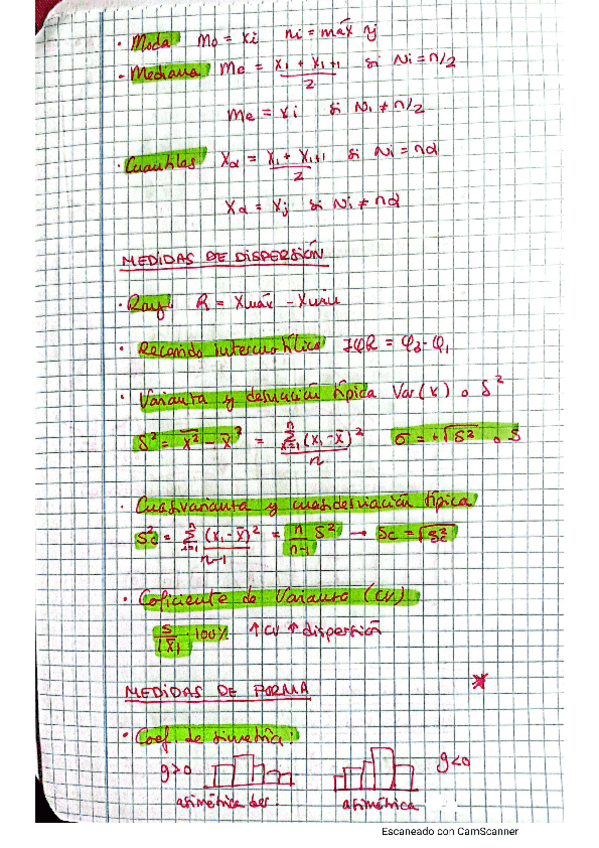 · Moda Mo = xi ni = máx nj
· Mediana Me = (x1 + x1+1)/2 si Ni = n/2
Me = xi si Ni ≠ n/2
· Cuantiles Xα = (x1 + x1+1)/2 si Ni = nα
Xα = xj si Ni ≠ nα
MEDIDAS DE DISPERSIÓN
· Rango: R = Xmáx - Xmin
· Recorrido intercuartílico IQR = Q3 - Q1
· Varianza y desviación típica Var(x) o S²
S² = x̄² - x̄² = Σ(x1 - x̄)²/n σ = +√S² o S
· Cuasivarianza y cuasidesviación típica
Sc² = Σ(x1 - x̄)²/(n-1) = n/(n-1) S² → Sc = √Sc²
· Coficiente de Varianza (CV)
S/|x̄| · 100% ↑CV ↑dispersión
MEDIDAS DE FORMA
· Coef. de simetría:
g>0 g<0
asimétrica der asimétrica
Escaneado con CamScanner